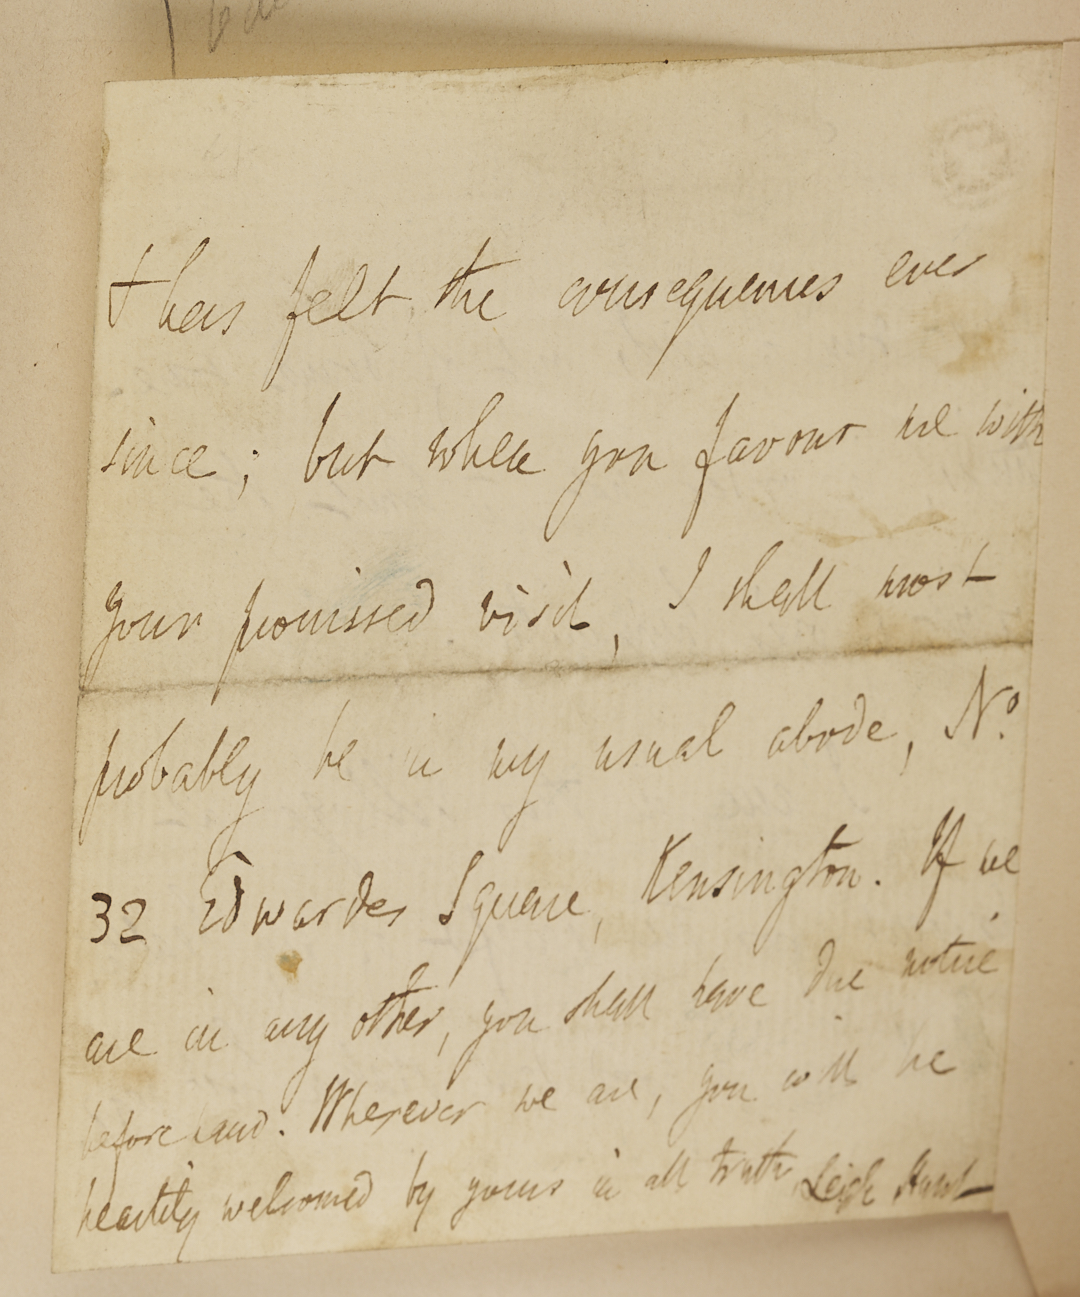 & has felt the consequences ever
since; but when you favour me with
your promissed visit, I shall most
probably be in my usual abode, Nº.
32 Edwardes Square, Kensington. If we
are in any other, you shall have due notice
beforehand. Wherever we are, you will be
heartily welcomed by yours in all truth, Leigh Hunt